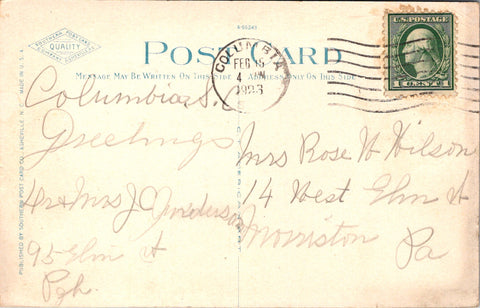 SOUTHERN POST CARD
QUALITY
ASHEVILLE, N. C.
MADE IN U. S. A.
PUBLISHED BY SOUTHERN POST CARD CO., ASHEVILLE, N. C.
POST CARD
MESSAGE MAY BE WRITTEN ON THIS SIDE
ADDRESS ONLY ON THIS SIDE
COLUMBIA
FEB 15
4
U.S. POSTAGE
1 CENT 1
Columbia S. C
Greetings
Dr & Mrs J C Anderson
95 Elm St
Pgh.
Mrs Rose W Wilson
14 West Elm St
Morriston Pa